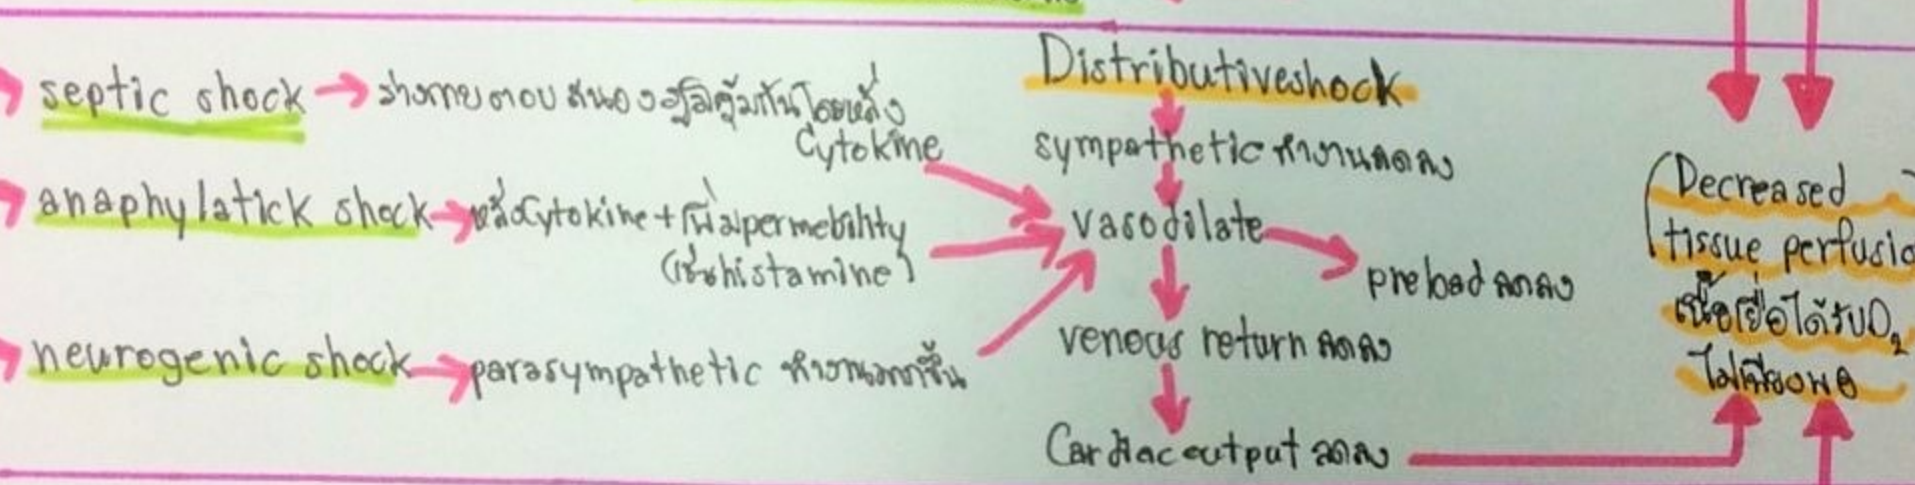 septic shock → ร่างกายตอบสนองภูมิคุ้มกันโดยหลั่ง
Cytokine
anaphylatick shock → หลั่งCytokine + เพิ่มpermebility
(เช่นhistamine)
neurogenic shock → parasympathetic ทำงานมากขึ้น
Distributiveshock
sympathetic ทำงานลดลง
vasodilate
preload ลดลง
venous return ลดลง
Cardiac output ลดลง
(Decreased
tissue perfusio
เนื้อเยื่อได้รับO2
ไม่เพียงพอ